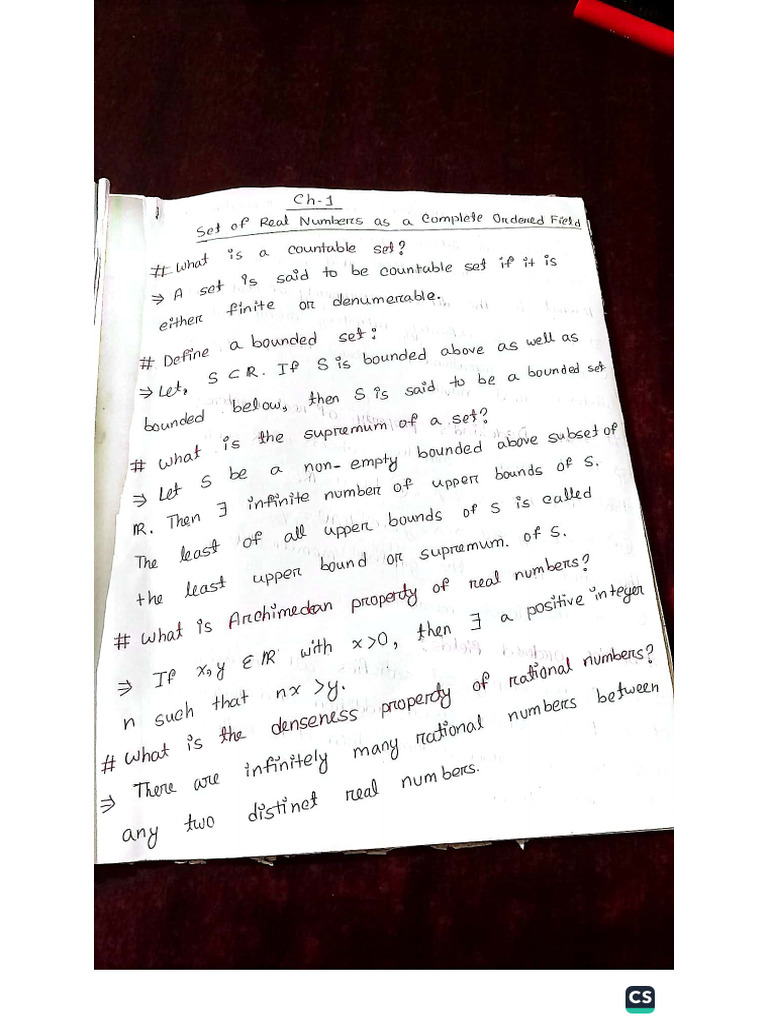 Ch-1
Set of Real Numbers as a Complete Ordered Field
# What is a countable set?
⇒ A set is said to be countable set if it is
either finite or denumerable.
# Define a bounded set:
⇒ Let, S ⊂ ℝ. If S is bounded above as well as
bounded below, then S is said to be a bounded set
# What is the supremum of a set?
⇒ Let S be a non-empty bounded above subset of
ℝ. Then ∃ infinite number of upper bounds of S.
The least of all upper bounds of S is called
the least upper bound or supremum. of S.
# What is Archimedean property of real numbers?
⇒ If x, y ∈ ℝ with x>0, then ∃ a positive integer
n such that nx >y.
# What is the denseness property of rational numbers?
⇒ There are infinitely many rational numbers between
any two distinct real numbers.
CS